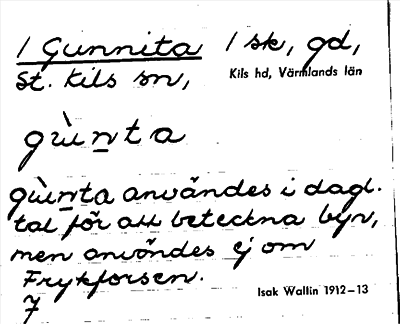 / Gunnita / sk, gd,
St. Kils sn,
Kils hd, Värmlands län
gùnta
gùnta användes i dagl.
tal för att beteckna byn,
men användes ej om
Frykforsen.
Isak Wallin 1912–13
7